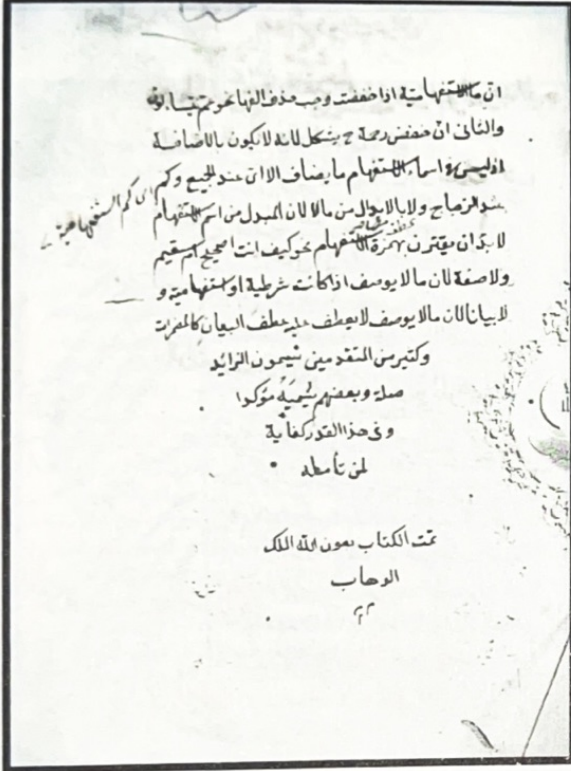 ان ما الاستفهامية اذا خفضت وجب حذف الفها نحو عم يتسالون
والثانى ان خفض رحمة ح يشكل لانه لا يكون بالاضافة
اذ ليس فى اسماء الاستفهام ما يضاف الا اى عند الجميع وكم
عند الزجاج ولا بالابدال من ما لان المبدل من اسم الاستفهام
لا بد ان يقترن بهمزة الاستفهام نحو كيف انت اصحيح ام سقيم
ولا صفة لان ما لا يوصف اذا كانت شرطية او استفهامية و
لا بيانا لان ما لا يوصف لا يعطف عليه عطف البيان كالمضمرات
وكثير من المتقدمين يسمون الزايد
صلة وبعضهم يسميه مؤكدا
وفى هذا القدر كفاية
لمن تأمله
تمت الكتاب بعون الله الملك
الوهاب
اى كم الاستفهامية